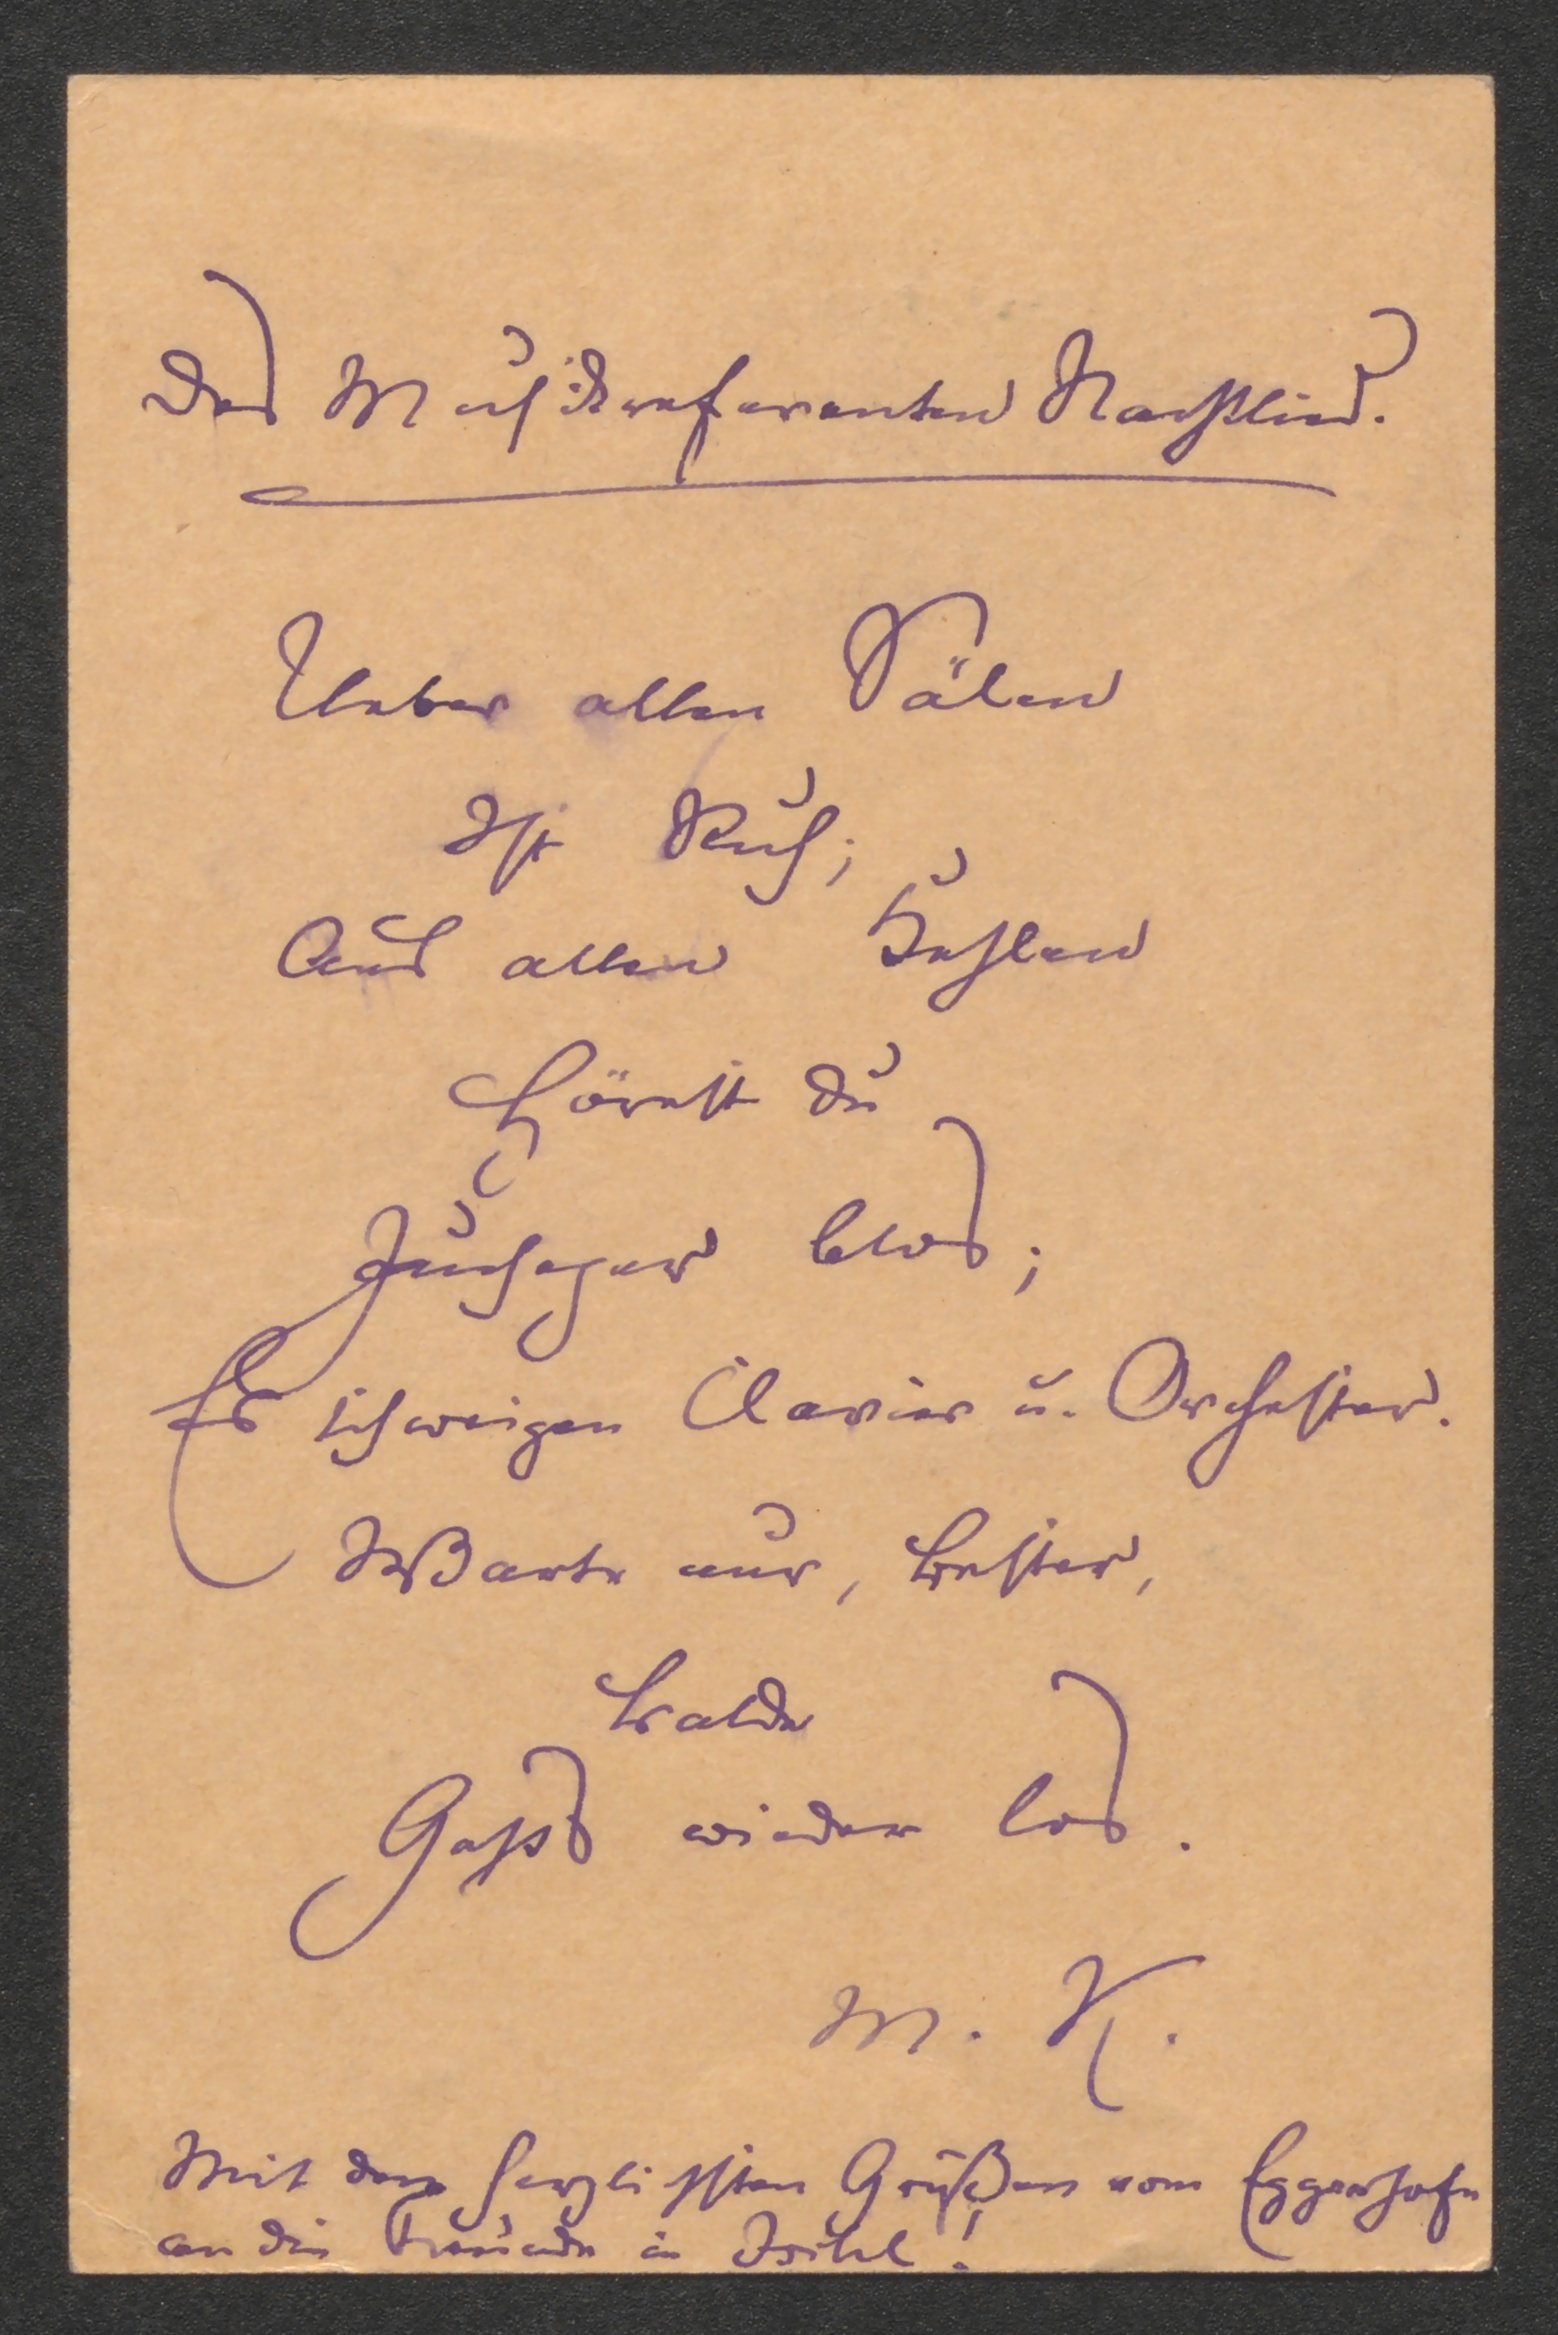 Des Musikreferenten Nachtlied.
Ueber allen Sälen
Ist Ruh;
Aus allen Kehlen
Hörest du
Juchezer blos;
Es schweigen Clavier u. Orchester.
Warte nur, bester,
balde
Gehts wieder los.
M. K.
Mit den herzlichsten Grüßen vom Eggerhofe
an die Freunde in Ischl!